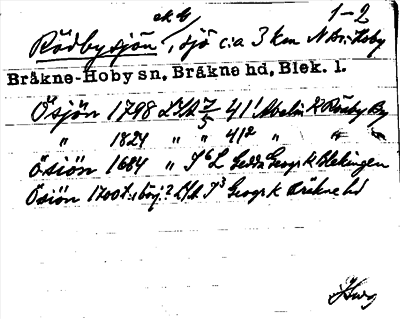 ek b 1-2
Rödbysjön, sjö c:a 3 km N Br.-Hoby
Bråkne-Hoby sn, Bråkne hd, Blek. l.
Ösjön 1798 LMA 7/5 41¹ Abelin K Rödby By
" 1824 " " 41² " " "
Ösiön 1684 " J⁶ L Gedda Geogr K Blekingen
Ösiön 1700 t. börj.? LMA J³ Geogr K Bräkne hd